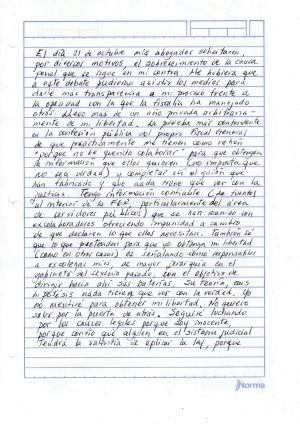 El día 21 de octubre mis abogados solicitaron,
por diversos motivos, el sobreseimiento de la causa
penal que se sigue en mi contra. Me hubiera que
a este debate pudieran asistir los medios para
darle más transparencia a mi proceso frente a
la opacidad con la que la fiscalía ha manejado
otras. Llevo más de un año privada arbitraria-
mente de mi libertad. La prueba más contundente
es la confesión pública del propio Fiscal General
de que prácticamente me tienen como rehén
"porque no he querido colaborar" para que obtengan
la información que ellos quieren (no importa que
no sea verdad) y completar así el guión que
han fabricado y que nada tiene que ver con la
justicia. Tengo información confiable (se
al interior de la FGR, particularmente del área
de servidores públicos) que se han reunido con
excolaboradores ofreciendo impunidad a cambio
de que declaren lo que ellos necesitan. También sé
que lo que pretenden para que yo obtenga mi libertad
(como en otros casos) es señalando como responsables
a excolegas míos, de mayor jerarquía en el
gabinete del sexenio pasado, con el objetivo de
dirigir hacia ahí sus baterías. Su teoría, sus
hipótesis nada tienen que ver con la verdad. Yo
no mentiré para obtener mi libertad. No quiero
salir por la puerta de atrás. Seguiré luchando
por los cauces legales porque soy inocente,
porque confío que alguien en el sistema judicial
tendrá la valentía de aplicar la ley, porque
Norma